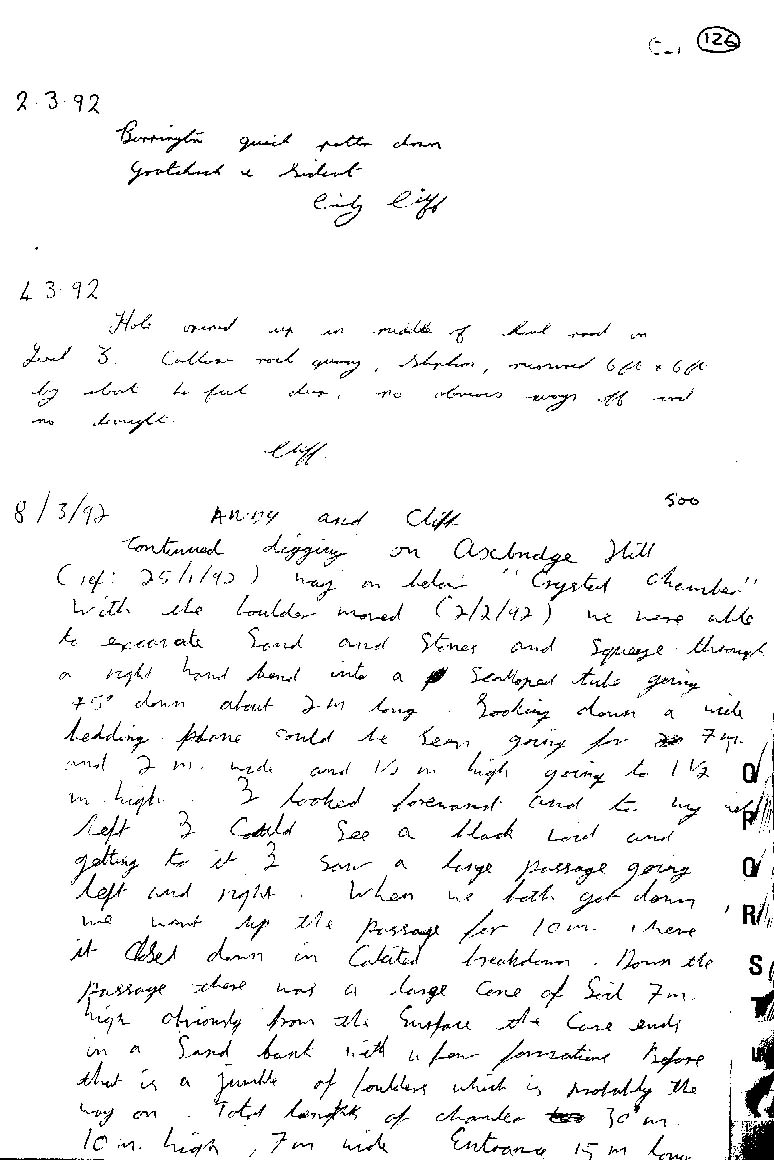 126
2.3.92
Burrington quick potter down
Goatchurch & Sidcot
Cliff
4.3.92
Hole opened up in middle of haul road on
Level 3. Cookswood rock quarry, measured 6ft x 6ft
by about 10 feet deep, no obvious ways off and
no draught.
Cliff.
500
8/3/92 ANDY and Cliff
Continued digging on Axbridge Hill
(ref: 25/1/92) way on below "Crystal Chamber"
With the boulder moved (2/2/92) we were able
to excavate Sand and Stones and Squeeze through
a right hand bend into a Scalloped tube going
45° down about 2m long. Looking down a wide
bedding plane could be seen going for 7m
and 2 m. wide and 1/2 m high going to 1 1/2
m high. I looked foreward and to my
left I Could See a black void and
getting to it I saw a large passage going
left and right. When we both got down
we went up the passage for 10m. where
it closed down in Calcited breakdown. Down the
passage there was a large Cone of Soil 7m.
high obviously from the Surface the Cone ends
in a Sand bank with a few formations Before
that is a jumble of boulders which is probably the
way on. Total length of chamber 30m.
10m. high, 7m wide Entrance 15m long
O
P
O
R
S
T